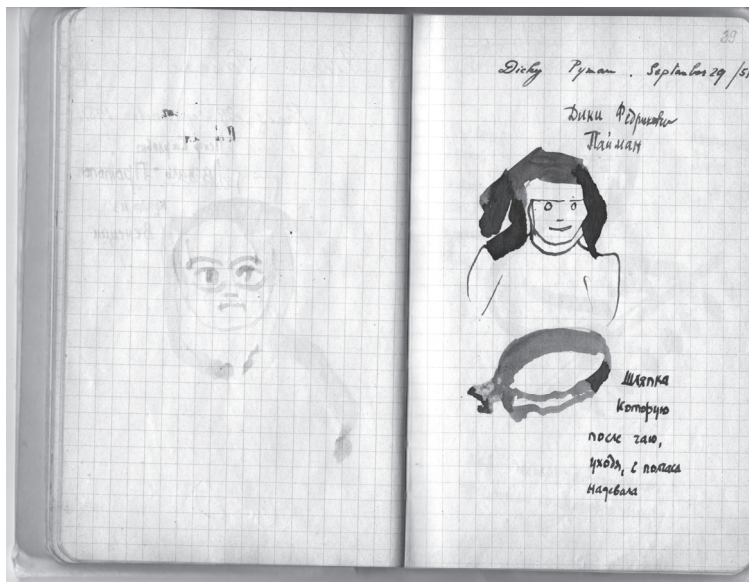 39
Dicky Pyman. September 29 /51
Дики Федрикович
Пайман
Шляпка
Которую
после чаю,
уходя, с полчаса
надевала